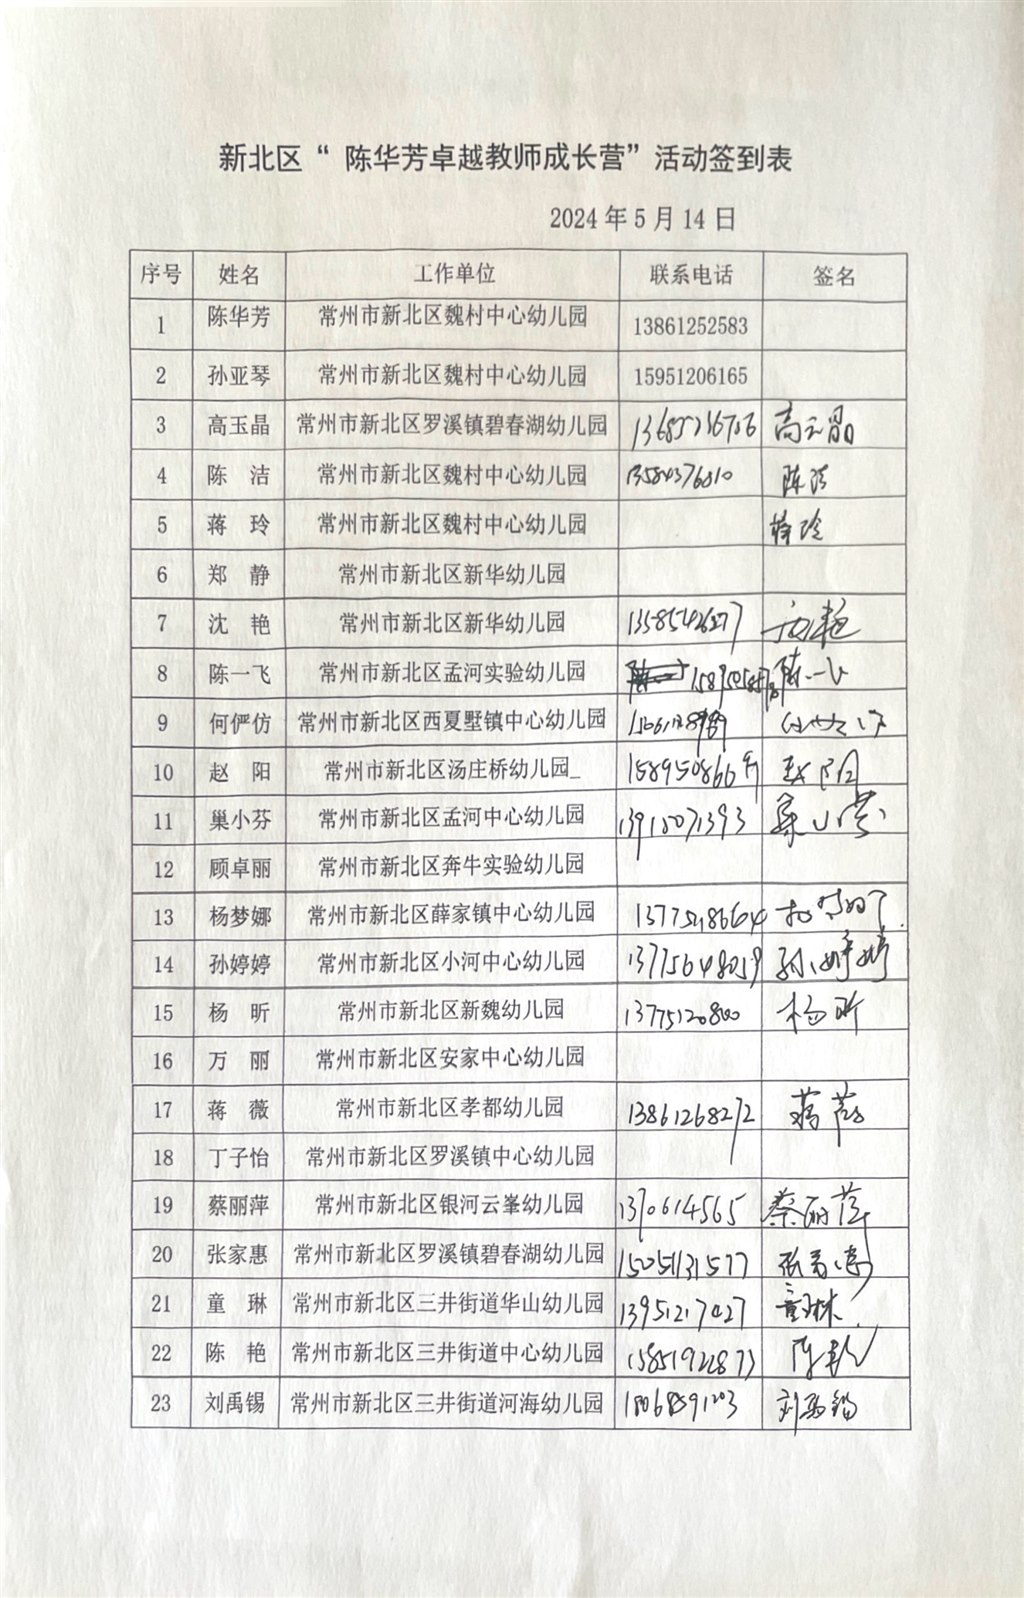 新北区“ 陈华芳卓越教师成长营”活动签到表
2024年5月14日
序号 姓名 工作单位 联系电话 签名
1 陈华芳 常州市新北区魏村中心幼儿园 13861252583
2 孙亚琴 常州市新北区魏村中心幼儿园 15951206165
3 高玉晶 常州市新北区罗溪镇碧春湖幼儿园 高玉晶
4 陈 洁 常州市新北区魏村中心幼儿园 陈洁
5 蒋 玲 常州市新北区魏村中心幼儿园 蒋玲
6 郑 静 常州市新北区新华幼儿园
7 沈 艳 常州市新北区新华幼儿园 沈艳
8 陈一飞 常州市新北区孟河实验幼儿园 陈一飞
9 何俨仿 常州市新北区西夏墅镇中心幼儿园
10 赵 阳 常州市新北区汤庄桥幼儿园_ 赵阳
11 巢小芬 常州市新北区孟河中心幼儿园
12 顾卓丽 常州市新北区奔牛实验幼儿园
13 杨梦娜 常州市新北区薛家镇中心幼儿园
14 孙婷婷 常州市新北区小河中心幼儿园 13775648059 孙婷婷
15 杨 昕 常州市新北区新魏幼儿园 13775120800 杨昕
16 万 丽 常州市新北区安家中心幼儿园
17 蒋 薇 常州市新北区孝都幼儿园 13861268272 蒋薇
18 丁子怡 常州市新北区罗溪镇中心幼儿园
19 蔡丽萍 常州市新北区银河云峯幼儿园 蔡丽萍
20 张家惠 常州市新北区罗溪镇碧春湖幼儿园 15051131577 张家惠
21 童 琳 常州市新北区三井街道华山幼儿园 13951217027 童琳
22 陈 艳 常州市新北区三井街道中心幼儿园 陈艳
23 刘禹锡 常州市新北区三井街道河海幼儿园 刘禹锡